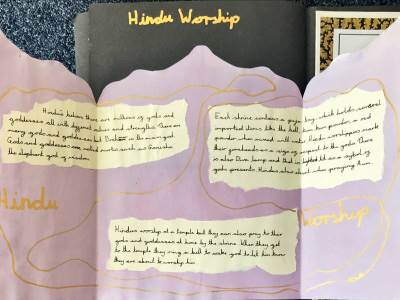 Hindu Worship
Hindu's believe there are millions of gods and
goddesses all with different values and strengths. There are
many gods and goddesses but Brahman is the main god.
Gods and goddesses are called murtis such as Ganesha
the elephant god of wisdom.
Each shrine contains a puja tray which holds several
important items like the bell, kum kum powder a red
powder when mixed with water Hindu worshippers mark
their foreheads as a sign of respect to the gods. There
is also Diva lamp and that is lighted lit as a symbol of
gods presents. Hindus also chant when praying
Hindu
Worship
Hindus worship at a temple but they can also pray to their
gods and goddesses at home by the shrine. When they get
to the temple they ring a bell to wake god to let him know
they are about to worship him.